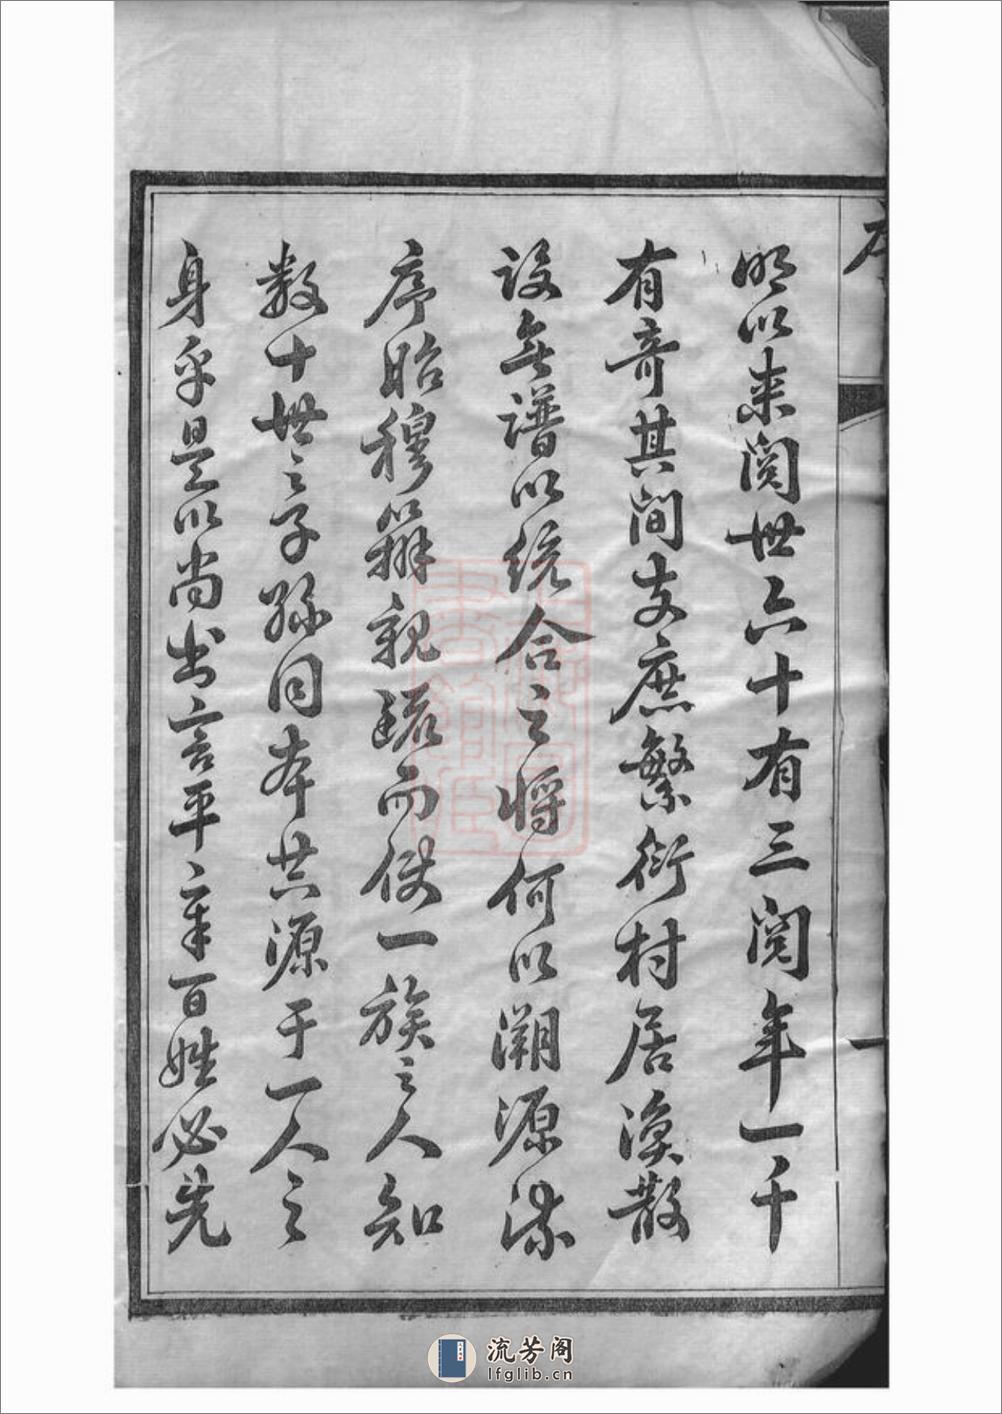 明以来閱世六十有三閱年一千
有奇其間支庶繁衍村居渙散
設無譜以統合之將何以溯源流
序昭穆辦親疏而使一族之人知
数十世之子孫同本共源于一人之
身乎是以尚書言平章百姓必先
序
一
流芳阁
lfglib.cn